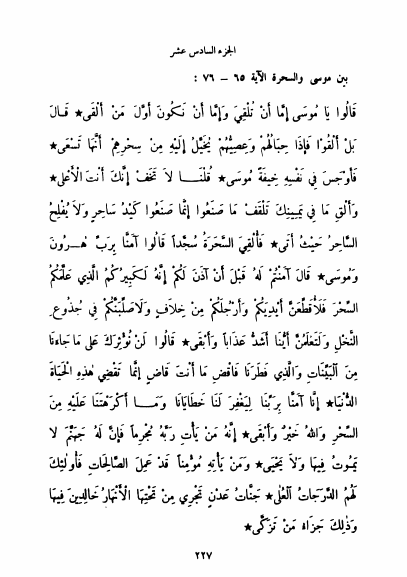 الجزء السادس عشر
بين موسى والسحرة الآية ٦٥ - ٧٦ :
قَالُوا يَا مُوسَى إِمَّا أَنْ تُلْقِيَ وَإِمَّا أَنْ نَكُونَ أَوَّلَ مَنْ أَلْقَى★ قَالَ
بَلْ أَلْقُوْا فَإِذَا حِبَالُهُمْ وَعِصِيُّهُمْ يُخَيَّلُ إِلَيْهِ مِنْ سِحْرِهِمْ أَنَّهَا تَسْعَى★
فَأَوْجَسَ فِي نَفْسِهِ خِيفَةً مُوسَى★ قُلْنَا لَا تَخَفْ إِنَّكَ أَنْتَ الْأَعْلَى★
وَأَلْقِ مَا فِي يَمِينِكَ تَلْقَفْ مَا صَنَعُوا إِنَّمَا صَنَعُوا كَيْدُ سَاحِرٍ وَلَا يُفْلِحُ
السَّاحِرُ حَيْثُ أَتَى★ فَأُلْقِيَ السَّحَرَةُ سُجَّداً قَالُوا آمَنَّا بِرَبِّ هَرُونَ
وَمُوسَى★ قَالَ آمَنْتُمْ لَهُ قَبْلَ أَنْ آذَنَ لَكُمْ إِنَّهُ لَكَبِيرُكُمُ الَّذِي عَلَّمَكُمُ
السِّحْرَ فَلَأُقَطِّعَنَّ أَيْدِيَكُمْ وَأَرْجُلَكُمْ مِنْ خِلَافٍ وَلَأُصَلِّبَنَّكُمْ فِي جُذُوعِ
النَّخْلِ وَلَتَعْلَمُنَّ أَيُّنَا أَشَدُّ عَذَاباً وَأَبْقَى★ قَالُوا لَنْ نُؤْثِرَكَ عَلَى مَا جَاءَنَا
مِنَ الْبَيِّنَاتِ وَالَّذِي فَطَرَنَا فَاقْضِ مَا أَنْتَ قَاضٍ إِنَّمَا تَقْضِي هَذِهِ الْحَيَاةَ
الدُّنْيَا★ إِنَّا آمَنَّا بِرَبِّنَا لِيَغْفِرَ لَنَا خَطَايَانَا وَمَا أَكْرَهْتَنَا عَلَيْهِ مِنَ
السِّحْرِ وَاللهُ خَيْرٌ وَأَبْقَى★ إِنَّهُ مَنْ يَأْتِ رَبَّهُ مُجْرِماً فَإِنَّ لَهُ جَهَنَّمَ لَا
يَمُوتُ فِيهَا وَلَا يَحْيَى★ وَمَنْ يَأْتِهِ مُؤْمِناً قَدْ عَمِلَ الصَّالِحَاتِ فَأُولَئِكَ
لَهُمُ الدَّرَجَاتُ الْعُلَى★ جَنَّاتُ عَدْنٍ تَجْرِي مِنْ تَحْتِهَا الْأَنْهَارُ خَالِدِينَ فِيهَا
وَذَلِكَ جَزَاءُ مَنْ تَزَكَّى★
٢٢٧